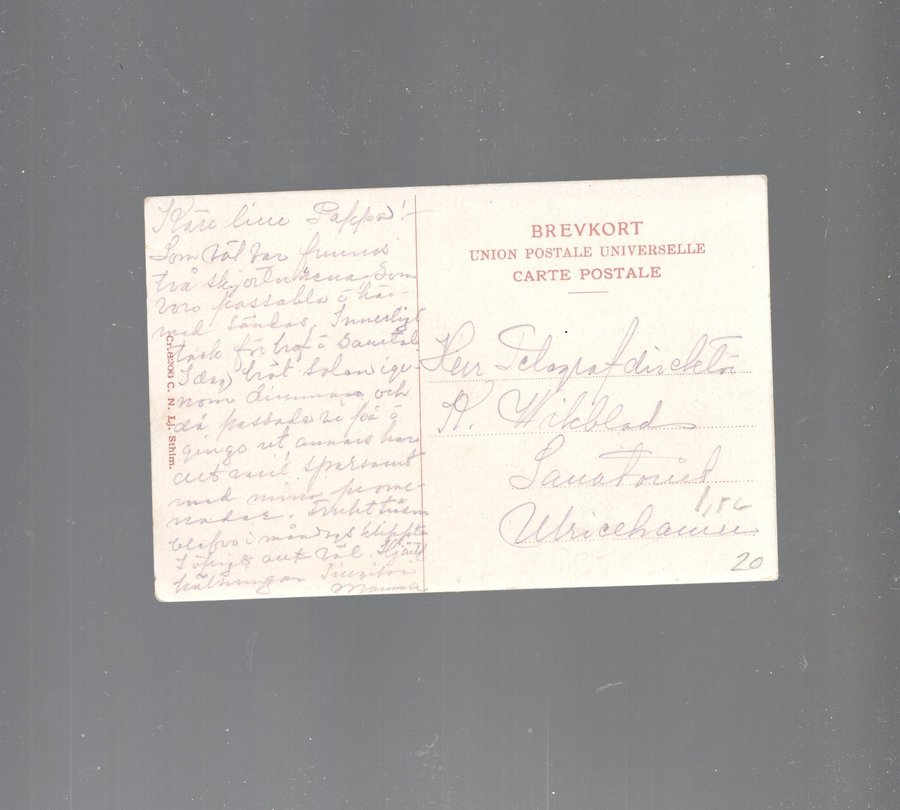 Käre lille Pappa!
Som väl var funnos
två skjortor rena som
voro passabla o här-
med sändas. Innerligt
tack för bref o samtal.
I dag bröt solen ige-
nom dimman och
då passade vi på o
gingo ut annars har
det varit sparsamt
med mina prome-
nader. Fruktträden
blefvo i måndags klippta
I öfrigt allt väl. Hjärtl
hälsningar
Mamma
Cr. 8206 C. N. Lj. Sthlm.
BREVKORT
UNION POSTALE UNIVERSELLE
CARTE POSTALE
Herr Telegrafdirektör
K. Wikblad
Sanatoriet
Ulricehamn
20